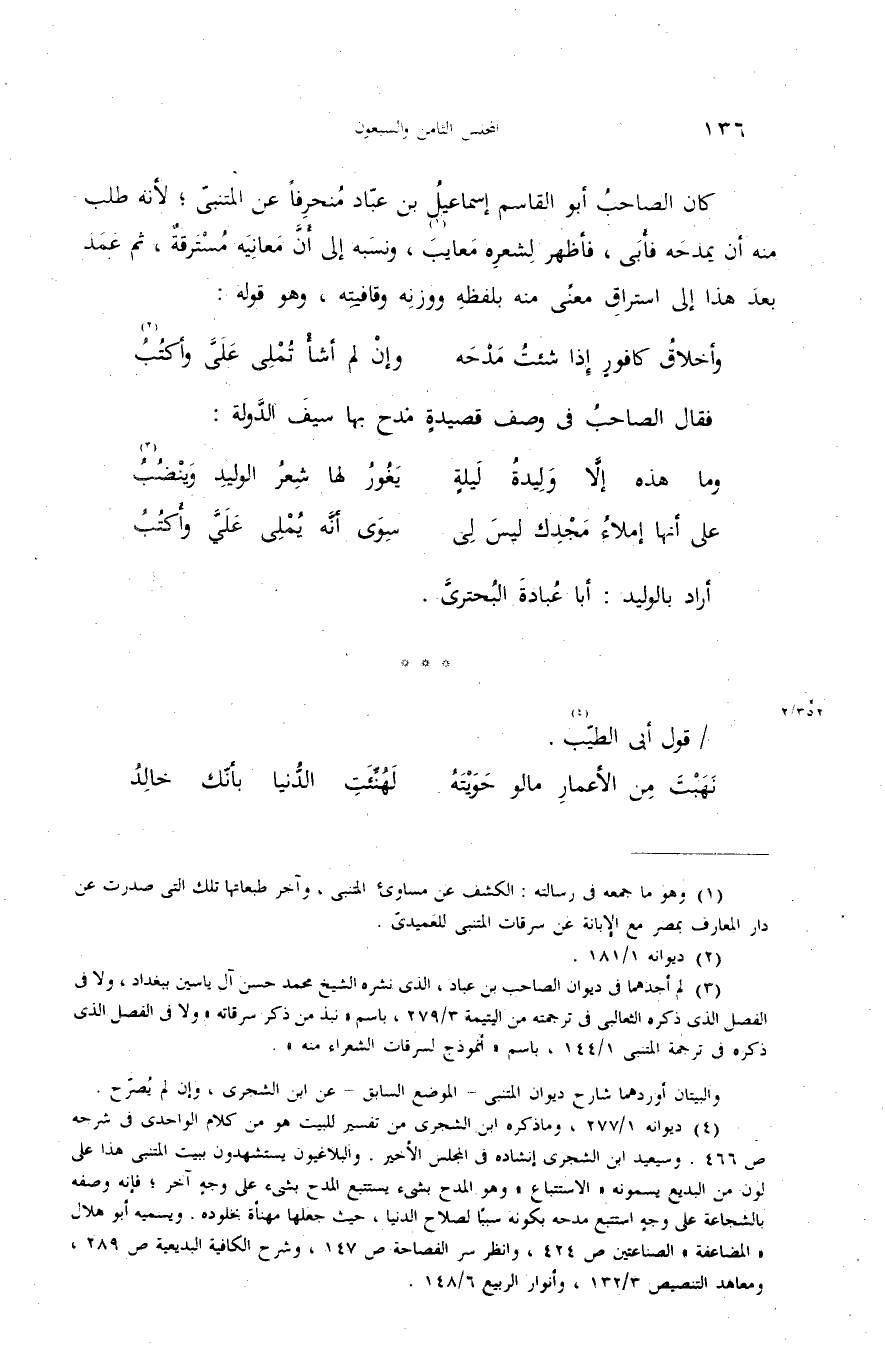 ١٣٦ المجلس الثامن والسبعون
كان الصاحبُ أبو القاسم إسماعيلُ بن عبّاد مُنحرِفاً عن المتنبىّ ؛ لأنه طلب
منه أن يمدحَه فأَبَى ، فأظهر لِشعرِه مَعايبَ (١) ، ونسَبه إلى أنَّ مَعانِيَه مُسْتَرقةٌ ، ثم عَمَدَ
بعدَ هذا إلى استراقِ معنًى منه بلفظهِ ووزنِه وقافيتِه ، وهو قوله :
وأخلاقُ كافورٍ إذا شئتُ مَدْحَه وإنْ لم أشأْ تُمْلِى عَلَىَّ وأكتُبُ (٢)
فقال الصاحبُ فى وصف قصيدةٍ مَدح بها سيفَ الدَّولة :
وما هذه إلَّا وَلِيدةُ لَيلةٍ يَغُورُ لها شِعرُ الوليدِ وَيَنْضُبُ (٣)
على أنها إملاءُ مَجْدِك ليسَ لِى سِوَى أنَّه يُمْلِى عَلَيَّ وأَكتُبُ
أراد بالوليد : أبا عُبادةَ البُحترىَّ .
* * *
/ قول أبى الطيّب (٤) .
نَهَبْتَ مِن الأعمارِ مالو حَوَيْتَهُ لَهُنِّئَتِ الدُّنيا بأنّك خالِدُ
(١) وهو ما جمعه فى رسالته : الكشف عن مساوئ المتنبى ، وآخر طبعاتها تلك التى صدرت عن
دار المعارف بمصر مع الإبانة عن سرقات المتنبى للعَميدىّ .
(٢) ديوانه ١٨١/١ .
(٣) لم أجدهما فى ديوان الصاحب بن عباد ، الذى نشره الشيخ محمد حسن آل ياسين ببغداد ، ولا فى
الفصل الذى ذكره الثعالبى فى ترجمته من اليتيمة ٢٧٩/٣ ، باسم « نبذ من ذكر سرقاته » ولا فى الفصل الذى
ذكره فى ترجمة المتنبى ١٤٤/١ ، باسم « أنموذج لسرقات الشعراء منه » .
والبيتان أوردهما شارح ديوان المتنبى – الموضع السابق – عن ابن الشجرى ، وإن لم يُصرّح .
(٤) ديوانه ٢٧٧/١ ، وماذكره ابن الشجرى من تفسير للبيت هو من كلام الواحدى فى شرحه
ص ٤٦٦ . وسيعيد ابن الشجرى إنشاده فى المجلس الأخير . والبلاغيون يستشهدون ببيت المتنبى هذا على
لون من البديع يسمونه « الاستتباع » وهو المدح بشىء يستتبع المدح بشىء على وجهٍ آخر ؛ فإنه وصفه
بالشجاعة على وجهٍ استتبع مدحه بكونه سببًا لصلاح الدنيا ، حيث جعلها مهنأة بخلوده . ويسميه أبو هلال
« المضاعفة » الصناعتين ص ٤٢٤ ، وانظر سر الفصاحة ص ١٤٧ ، وشرح الكافية البديعية ص ٢٨٩ ،
ومعاهد التنصيص ١٣٢/٣ ، وأنوار الربيع ١٤٨/٦ .